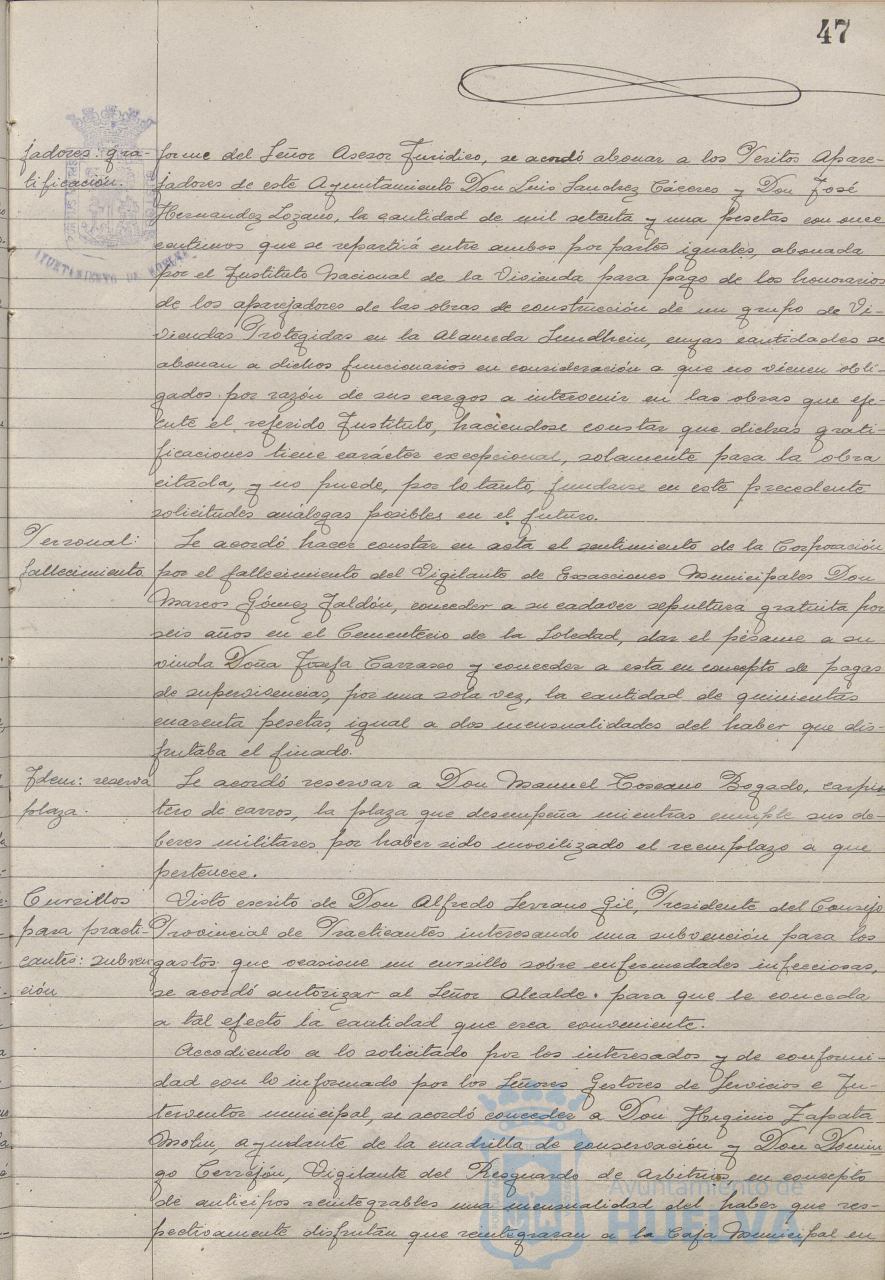 47
jadores: gra-
tificación.
forme del Señor Asesor Juridico, se acordó abonar a los Peritos Apare-
jadores de este Ayuntamiento Don Luis Sandrez Cáceres y Don José
Hernandez Lozano, la cantidad de mil setenta y una pesetas con once
centimos que se repartirá entre ambos por partes iguales, abonada
por el Instituto Nacional de la Vivienda para pago de los honorarios
de los aparejadores de las obras de construcción de un grupo de Vi-
viendas Protegidas en la Alameda Sundhein, cuyas cantidades se
abonan a dichos funcionarios en consideración a que no vienen obli-
gados por razón de sus cargos a intervenir en las obras que eje-
cute el referido Instituto, haciendose constar que dichas grati-
ficaciones tiene carácter excepcional, solamente para la obra
citada, y no puede, por lo tanto, fundarse en este precedente
solicitudes análogas posibles en el futuro.
Personal:
fallecimiento
Se acordó hacer constar en acta el sentimiento de la Corporación
por el fallecimiento del Vigilante de Exacciones Municipales Don
Marcos Gómez Jaldón, conceder a su cadaver sepultura gratuita por
seis años en el Cementerio de la Soledad, dar el pésame a su
viuda Doña Josefa Carrasco y conceder a esta en concepto de pagas
de supervivencias, por una sola vez, la cantidad de quinientas
cuarenta pesetas, igual a dos mensualidades del haber que dis-
frutaba el finado.
Idem: reserva
plaza.
Se acordó reservar a Don Manuel Toscano Bogado, carpin
tero de carros, la plaza que desempeña mientras cumple sus de-
beres militares por haber sido movilizado el reemplazo a que
pertenece.
Cursillos
para practi-
cantes: subven
ción
Visto escrito de Don Alfredo Serrano Gil, Presidente del Consejo
Provincial de Practicantes interesando una subvención para los
gastos que ocasione un cursillo sobre enfermedades infecciosas,
se acordó autorizar al Señor Alcalde para que le conceda
a tal efecto la cantidad que crea conveniente.
Accediendo a lo solicitado por los interesados y de conformi-
dad con lo informado por los Señores Gestores de Servicios e In-
terventor municipal, se acordó conceder a Don Higinio Zapata
Mohu, ayudante de la cuadrilla de conservación y Don Domin
go Cerrejón, Vigilante del Resguardo de Arbitrios, en concepto
de anticipos reintegrables una mensualidad del haber que res-
pectivamente disfrutan que reintegraran a la Caja Municipal en
Ayuntamiento de
HUELVA